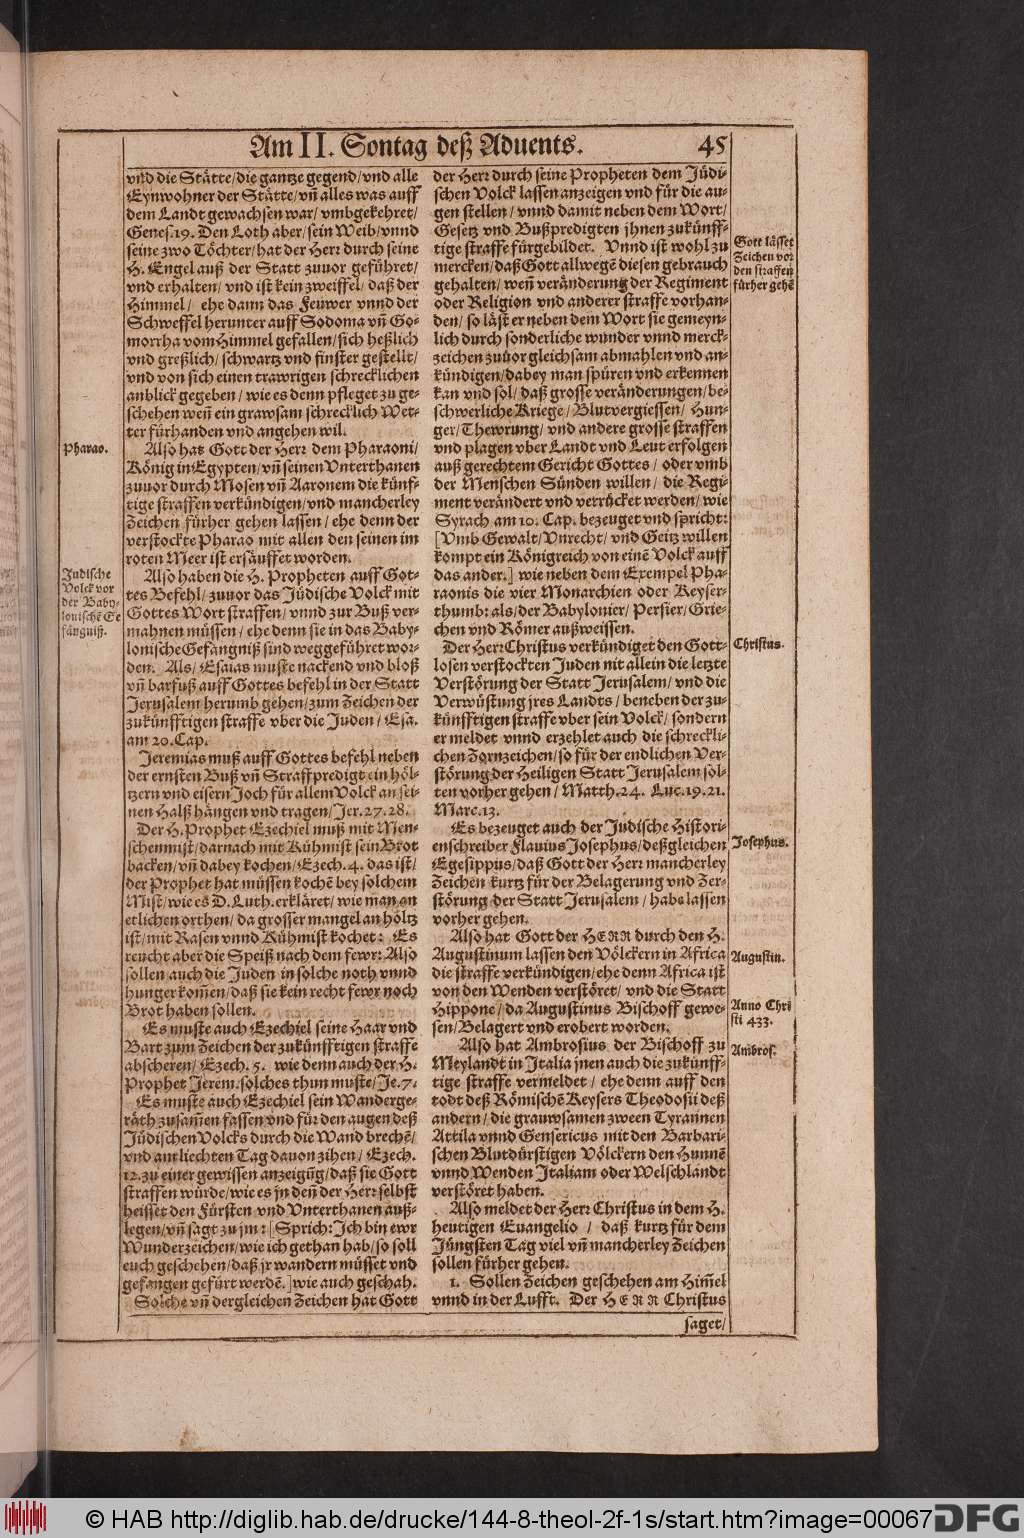 Am II. Sontag deß Aduents. 45
vnd die Stätte/die gantze gegend/vnd alle
Eynwohner der Stätte/vñ alles was auff
dem Landt gewachsen war/ vmbgekehret/
Genes.19. Den Loth aber/sein Weib/vnnd
seine zwo Töchter/hat der Herr durch seine
H. Engel auß der Statt zuuor geführet/
vnd erhalten/ vnd ist kein zweiffel/ daß der
Himmel / ehe dann das Feuwer vnnd der
Schweffel herunter auff Sodoma vñ Go-
morrha vom Himmel gefallen/sich heßlich
vnd greßlich/ schwartz vnd finster gestellt/
vnd von sich einen trawrigen schrecklichen
anblick gegeben / wie es denn pfleget zu ge-
schehen weñ ein grawsam schrecklich Wet-
ter fürhanden vnd angehen wil.
Pharao.
Also hat Gott der Herr dem Pharaoni/
König in Egypten/ vñ seinen Vnterthanen
zuuor durch Mosen vñ Aaronem die künf-
tige straffen verkündigen/vnd mancherley
Zeichen fürher gehen lassen / ehe denn der
verstockte Pharao mit allen den seinen im
roten Meer ist ersäuffet worden.
Judische
Volck vor
der Baby-
lonischẽ Ge
fängniß.
Also haben die H. Propheten auff Got-
tes Befehl/ zuuor das Jüdische Volck mit
Gottes Wort straffen/ vnnd zur Buß ver-
mahnen müssen / ehe denn sie in das Baby-
lonische Gefängniß sind weggeführet wor-
den. Als/ Esaias muste nackend vnd bloß
vñ barfuß auff Gottes befehl in der Statt
Jerusalem herumb gehen/zum Zeichen der
zukünfftigen straffe vber die Juden / Esa.
am 20.Cap.
Jeremias muß auff Gottes befehl neben
der ernsten Buß vñ Straffpredigt ein höl-
tzern vnd eisern Joch für allem Volck an sei-
nen Halß hängen vnd tragen/ Jer.27.28.
Der H. Prophet Ezechiel muß mit Men-
schenmist/darnach mit Kühmist sein Brot
backen/ vñ dabey kochen/ Ezech. 4. das ist/
der Prophet hat müssen kochẽ bey solchem
Mist/ wie es D. Luth. erkläret/ wie man an
etlichen orthen/ da grosser mangel an höltz
ist/ mit Rasen vnnd Kühmist kochet: Es
reucht aber die Speiß nach dem fewr: Also
sollen auch die Juden in solche noth vnnd
hunger kom̃en/ daß sie kein recht fewr noch
Brot haben sollen.
Es muste auch Ezechiel seine Haar vnd
Bart zum Zeichen der zukünfftigen straffe
abscheren/ Ezech. 5. wie denn auch der H.
Prophet Jerem.solches thun muste/ Je.7.
Es muste auch Ezechiel sein Wanderge-
räth zusam̃en fassen vnd für den augen deß
Jüdischen Volcks durch die Wand brechẽ/
vnd am liechten Tag dauon zihen / Ezech.
12. zu einer gewissen anzeigũg/daß sie Gott
straffen würde/wie es jn deñ der Herr selbst
heisset den Fürsten vnd Vnterthanen auß-
legen/ vñ sagt zu jm: [Sprich: Ich bin ewr
Wunderzeichen/ wie ich gethan hab/so soll
euch geschehen/daß jr wandern müsset vnd
gefangen gefürt werdẽ.] wie auch geschah.
Solche vñ dergleichen Zeichen hat Gott
der Herr durch seine Propheten dem Jüdi-
schen Volck lassen anzeigen vnd für die au-
gen stellen / vnnd damit neben dem Wort/
Gesetz vnd Bußpredigten jhnen zukünff-
tige straffe fürgebildet. Vnnd ist wohl zu
mercken/daß Gott allwegẽ diesen gebrauch
gehalten/ weñ veränderung der Regiment
oder Religion vnd anderer straffe vorhan-
den/ so läst er neben dem Wort sie gemeyn-
lich durch sonderliche wunder vnnd merck-
zeichen zuuor gleichsam abmahlen vnd an-
kündigen/dabey man spüren vnd erkennen
kan vnd sol/ daß grosse veränderungen/be-
schwerliche Kriege/ Blutvergiessen/ Hun-
ger/Thewrung/ vnd andere grosse straffen
vnd plagen vber Landt vnd Leut erfolgen
auß gerechtem Gericht Gottes / oder vmb
der Menschen Sünden willen / die Regi-
ment verändert vnd verrücket werden/ wie
Syrach am 10. Cap. bezeuget vnd spricht:
[Vmb Gewalt/ Vnrecht/ vnd Geitz willen
kompt ein Königreich von einẽ Volck auff
das ander.] wie neben dem Exempel Pha-
raonis die vier Monarchien oder Keyser-
thumb: als/der Babylonier/ Persier/ Grie-
chen vnd Römer außweissen.
Gott lässet
Zeichen vor
den straffen
fürher gehẽ
Der Herr Christus verkündiget den Gott-
losen verstockten Juden nit allein die letzte
Verstörung der Statt Jerusalem/ vnd die
Verwüstung jres Landts / beneben der zu-
künfftigen straffe vber sein Volck/ sondern
er meldet vnnd erzehlet auch die schreckli-
chen Zornzeichen/so für der endlichen Ver-
störung der Heiligen Statt Jerusalem sol-
ten vorher gehen / Matth.24. Luc.19.21.
Marc.13.
Christus.
Es bezeuget auch der Judische Histori-
enschreiber Flauius Josephus/ deßgleichen
Egesippus/daß Gott der Herr mancherley
Zeichen kurtz für der Belagerung vnd Zer-
störung der Statt Jerusalem / habe lassen
vorher gehen.
Josephus.
Also hat Gott der HERR durch den H.
Augustinum lassen den Völckern in Africa
die straffe verkündigen/ehe denn Africa ist
von den Wenden verstöret/ vnd die Statt
Hippone/ da Augustinus Bischoff gewe-
sen/Belagert vnd erobert worden.
Augustin.
Anno Chri
sti 433.
Also hat Ambrosius der Bischoff zu
Meylandt in Italia jnen auch die zukünff-
tige straffe vermeldet / ehe denn auff den
todt deß Römischẽ Keysers Theodosii deß
andern / die grauwsamen zween Tyrannen
Attila vnnd Gensericus mit den Barbari-
schen Blutdürstigen Völckern den Hunnẽ
vnnd Wenden Italiam oder Welschlandt
verstöret haben.
Ambros.
Also meldet der Herr Christus in dem H.
heutigen Euangelio / daß kurtz für dem
Jüngsten Tag viel vñ mancherley Zeichen
sollen fürher gehen.
1. Sollen Zeichen geschehen am Him̃el
vnnd in der Lufft. Der HERR Christus
saget/
© HAB http://diglib.hab.de/drucke/144-8-theol-2f-1s/start.htm?image=00067
DFG